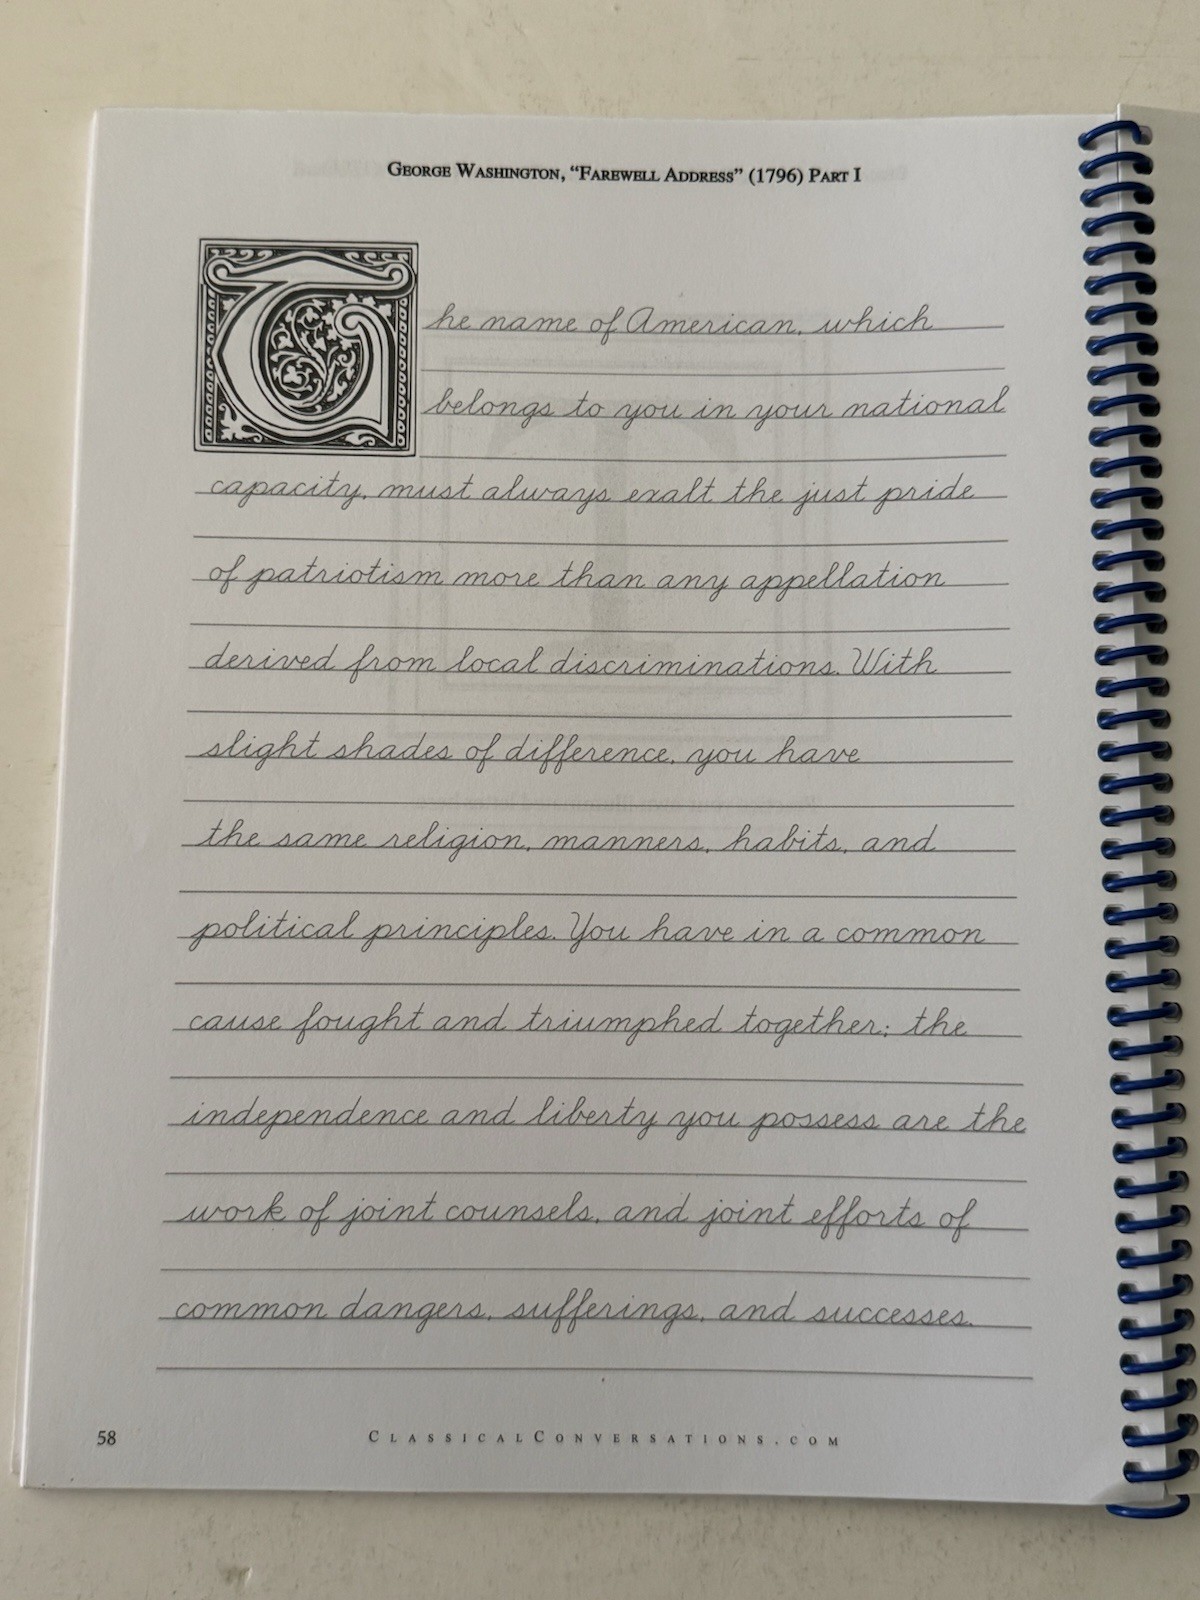 George Washington, "Farewell Address" (1796) Part I
The name of American, which
belongs to you in your national
capacity, must always exalt the just pride
of patriotism more than any appellation
derived from local discriminations. With
slight shades of difference, you have
the same religion, manners, habits, and
political principles. You have in a common
cause fought and triumphed together; the
independence and liberty you possess are the
work of joint counsels, and joint efforts of
common dangers, sufferings, and successes.
58 ClassicalConversations.com